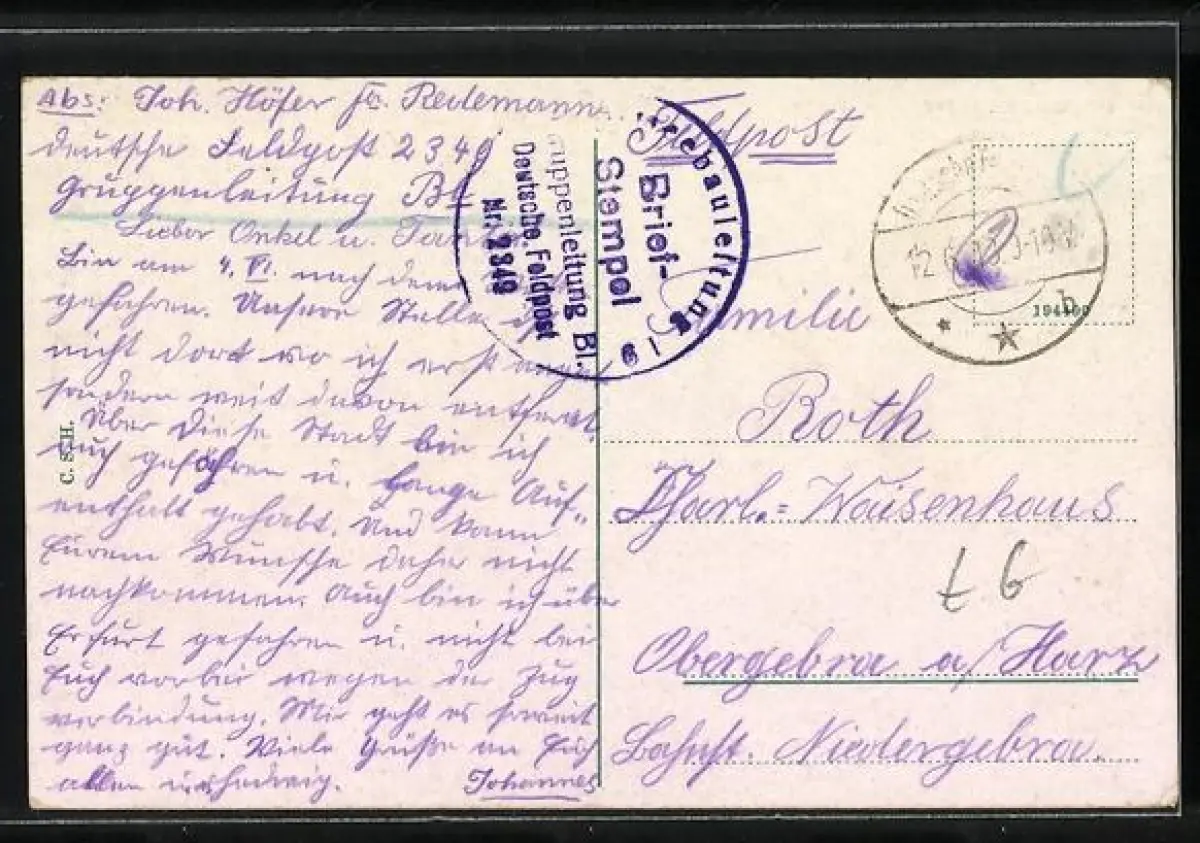 Abs: Joh. Höfer fa. Redemann
deutsche Feldpost 2349
Gruppenleitung Bl.
Lieber Onkel u. Tante
Bin am 4. VI. nach dem
gefahren. Unsere Stelle
nicht dort wo ich erst
sondern weit davon entfernt.
Über diese Stadt bin ich
auch gefahren u. lange Auf-
enthalt gehabt. Und kann
Eurem Wunsche daher nicht
nachkommen. Auch bin ich über
Erfurt gefahren u. nicht bei
Euch vorbei wegen der Zug
verbindung. Mir geht es soweit
ganz gut. Viele Grüße an Euch
allen u. Hedwig.
Johannes
C. S. H.
Brief-
Stempel
Gruppenleitung Bl.
Deutsche Feldpost
Nr. 2349
Feldpost
12.6.
b
194400
Familie
Roth
Charl.-Waisenhaus
Obergebra a/Harz
Bahnst. Niedergebra.